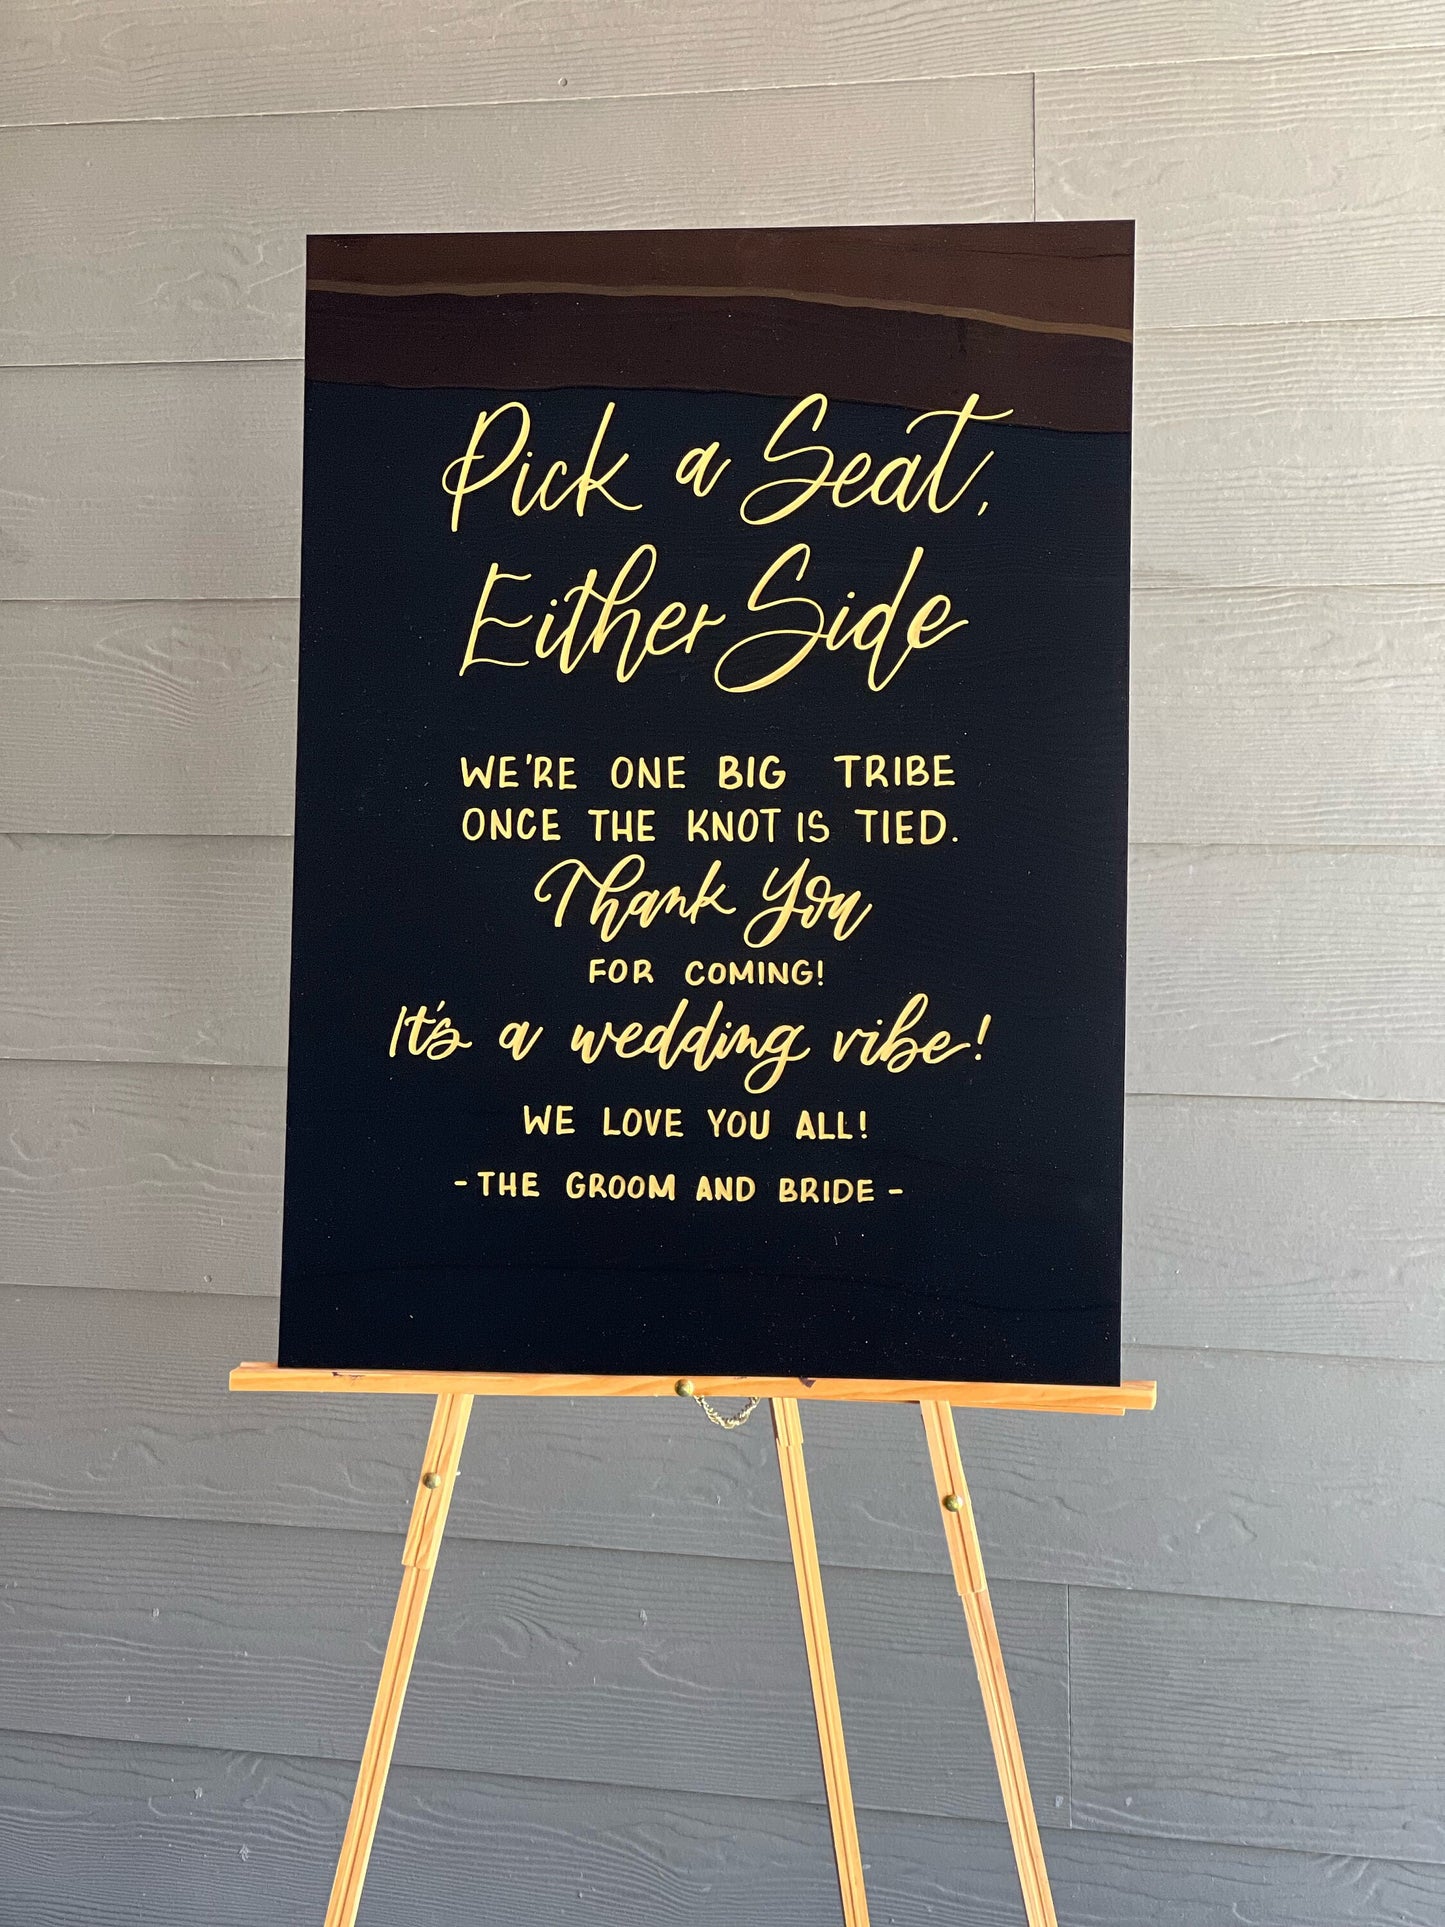 Pick a Seat,
Either Side
WE'RE ONE BIG TRIBE
ONCE THE KNOT IS TIED.
Thank You
FOR COMING!
It's a wedding vibe!
WE LOVE YOU ALL!
- THE GROOM AND BRIDE -